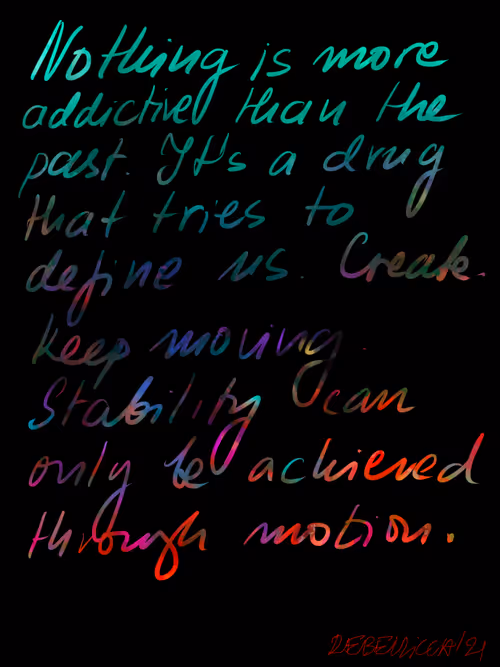 Nothing is more
addictive than the
past. It's a drug
that tries to
define us. Create.
Keep moving.
Stability can
only be achieved
through motion.